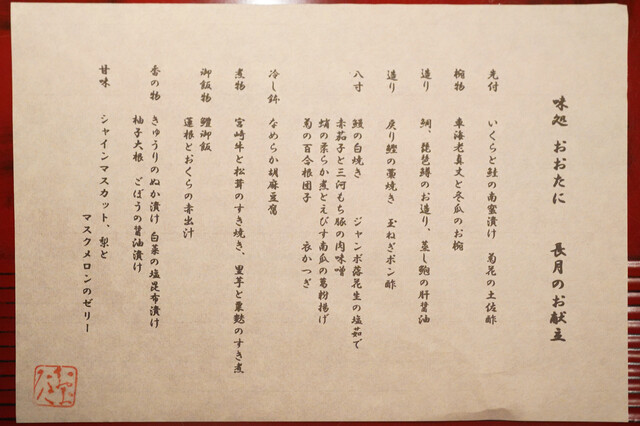 味処 おおたに 長月のお献立
先付 いくらと鮭の南蛮漬け 菊花の土佐酢
椀物 車海老真丈と冬瓜のお椀
造り 鯛、琵琶鱒のお造り、蒸し鮑の肝醤油
造り 戻り鰹の藁焼き 玉ねぎポン酢
八寸 鰻の白焼き ジャンボ落花生の塩茹で
赤茄子と三河もち豚の肉味噌
蛸の柔らか煮とえびす南瓜の葛粉揚げ
菊の百合根団子 衣かつぎ
冷し鉢 なめらか胡麻豆腐
煮物 宮崎牛と松茸のすき焼き、里芋と粟麩のすき煮
御飯物 鱧御飯
蓮根とおくらの赤出汁
香の物 きゅうりのぬか漬け 白菜の塩昆布漬け
柚子大根 ごぼうの醤油漬け
甘味 シャインマスカット、梨と
マスクメロンのゼリー